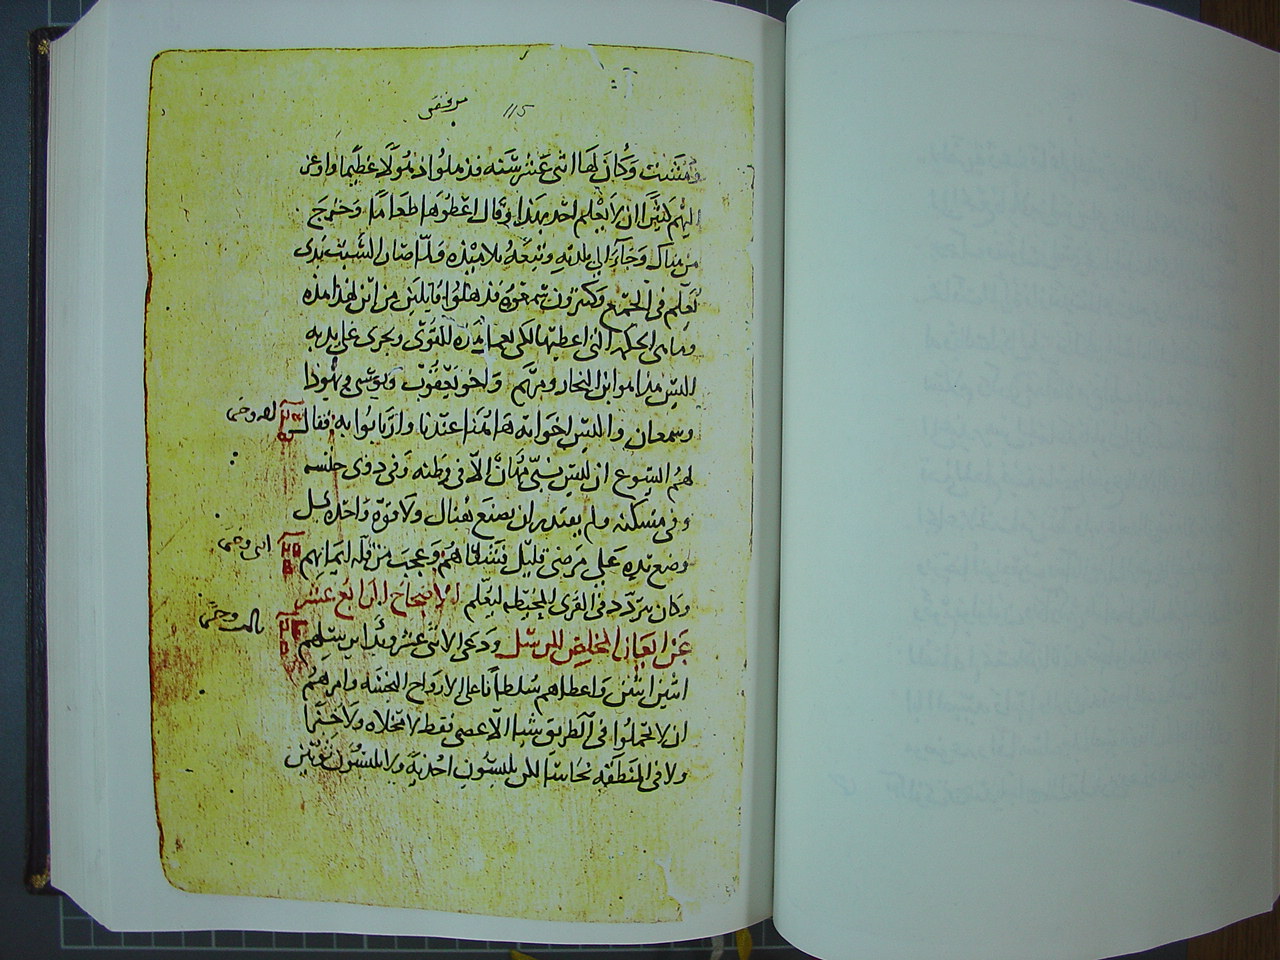 مرقص 115
ومشت وكان لها اثنى عشر سنه فذهلوا ذهولا عظيما واوعز
اليهم كثيرا ان لا يعلم احد بهذا وقال اعطوها طعاما وخرج
من هناك وجآء الى بلدته وتبعه تلاميذه ولما صار السبت بدى
يعلم فى المجمع وكثيرون سمعوه فذهلوا قايلين من اين لهذا هذه
وما هى الحكمه التى اعطيها لكى يعمل هذه القوى ويجرى على يديه
اليس هذا هو ابن النجار ومريم واخو يعقوب ويوسى ويهوذا
وسمعان واليس اخواته هاهنا عندنا وارتابوا به فقال
لهم اليسوع ان ليس نبى مهان الا فى وطنه وفى ذوى جنسه
وفى مسكنه ولم يقتدر ان يصنع هناك ولا قوة واحده بل
وضع يده على مرضى قليل فشفاهم وعجب من قله ايمانهم
وكان يتردد فى القرى المحيطه ليعلم الاصحاح الرابع عشر
ودعى الاثنى عشر وبدا يرسلهم
اثنين اثنين واعطاهم سلطانا على الارواح النجسه وامرهم
ان لا تحملوا فى الطريق شيا الا عصى فقط لا مخلاه ولا خبزا
ولا فى المنطقه نحاسا بل يلبسون احذيه ولا يلبسون ثوبين